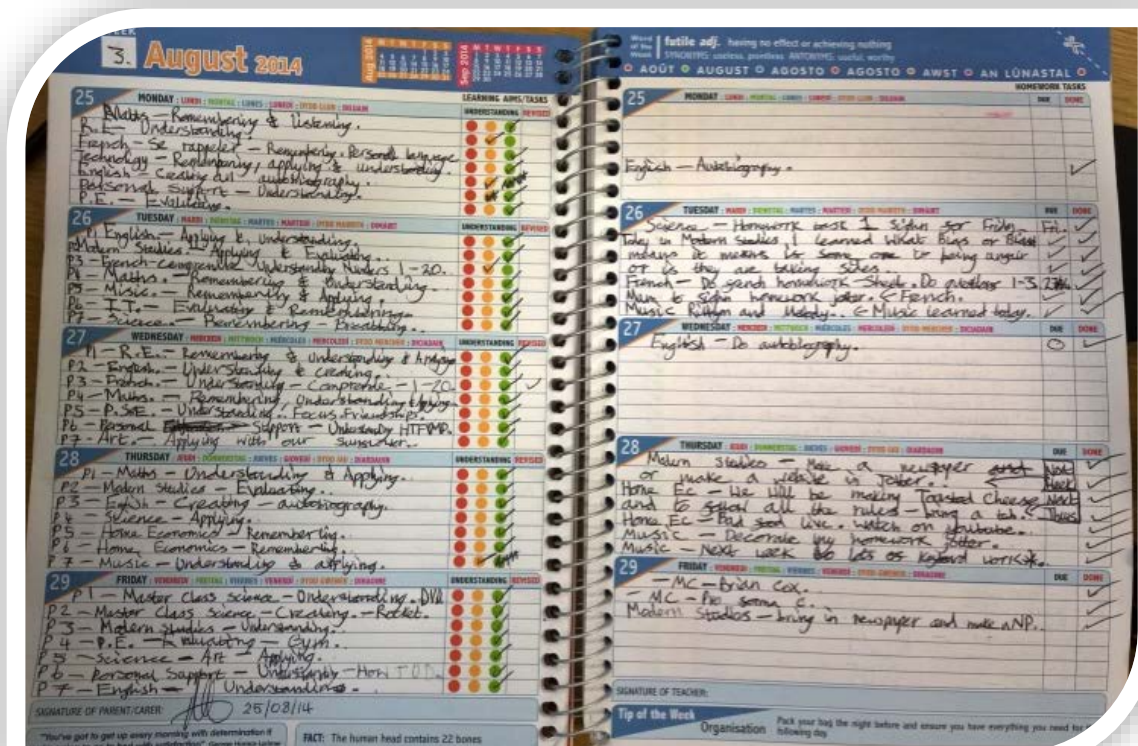 3.
August 2014
Aug 2014
Sep 2014
25 MONDAY : LUNDI : MONTAG : LUNES : LUNEDÌ : DYDD LLUN : DILUAIN
LEARNING AIMS/TASKS
UNDERSTANDING REVISED
Maths - Remembering & Listening.
R.E - Understanding.
French - Se rappeler - Remembering. Personal language
Technology - Remembering, applying & understanding.
English - Creating an autobiography.
Personal Support - Understanding.
P.E. - Evaluating.
26 TUESDAY : MARDI : DIENSTAG : MARTES : MARTEDÌ : DYDD MAWRTH : DIMÀIRT
UNDERSTANDING REVISED
P1 English - Applying & Understanding.
Modern Studies - Applying & Evaluating.
P3 - French - Understanding Numbers 1-20.
P4 - Maths. - Remembering & Understanding.
P5 - Music. - Remembering & Applying.
P6 - I.T. - Evaluating & Remembering.
P7 - Science - Remembering - Breathing.
27 WEDNESDAY : MERCREDI : MITTWOCH : MIÉRCOLES : MERCOLEDÌ : DYDD MERCHER : DICIADAIN
UNDERSTANDING REVISED
P1 - R.E. - Remembering & Understanding &
P2 - English. - Understanding & creating.
P3 - French. - Understanding - Comprendre - 1-20.
P4 - Maths. - Remembering, Understanding,
P5 - P.S.E. - Understanding. Focus. Friendships.
P6 - Personal Support - HTFVMP.
P7 - Art. - Applying with our
28 THURSDAY : JEUDI : DONNERSTAG : JUEVES : GIOVEDÌ : DYDD IAU : DIARDAOIN
UNDERSTANDING REVISED
P1 - Maths - Understanding & Applying.
P2 - Modern Studies - Evaluating.
P3 - English - Creating - autobiography.
P4 - Science - Applying.
P5 - Home Economics - Remembering.
P6 - Home Economics - Remembering.
P7 - Music - Understanding & applying.
29 FRIDAY : VENDREDI : FREITAG : VIERNES : VENERDÌ : DYDD GWENER : DIHAOINE
UNDERSTANDING REVISED
P1 - Master Class Science - Understanding.
P2 - Master Class Science - Creating - Rocket.
P3 - Modern Studies - Understanding.
P4 - P.E. - Evaluating - Gym.
P5 - Science - Art - Applying.
P6 - Personal Support - - How T.O.D.
P7 - English - Understanding.
SIGNATURE OF PARENT/CARER: 25/08/14
"You've got to get up every morning with determination if
FACT: The human head contains 22 bones
Word of the Week
futile adj. having no effect or achieving nothing
SYNONYMS: useless, pointless ANTONYMS: useful, worthy
AOÛT AUGUST AGOSTO AGOSTO AWST AN LÙNASTAL
HOMEWORK TASKS
25 MONDAY : LUNDI : MONTAG : LUNES : LUNEDÌ : DYDD LLUN : DILUAIN
DUE DONE
English - Autobiography.
26 TUESDAY : MARDI : DIENSTAG : MARTES : MARTEDÌ : DYDD MAWRTH : DIMÀIRT
DUE DONE
Science - Homework task 1 sign for Friday. Fri.
Today in Modern Studies, I learned what Bias or
means it means is some one is being
or is they are taking sides.
French - Do homework - Sheet. Do questions 1-3.
Mum to sign homework jotter. ← French.
Music Rhythm and Melody.. ← Music learned today.
27 WEDNESDAY : MERCREDI : MITTWOCH : MIÉRCOLES : MERCOLEDÌ : DYDD MERCHER : DICIADAIN
DUE DONE
English - Do autobiography.
28 THURSDAY : JEUDI : DONNERSTAG : JUEVES : GIOVEDÌ : DYDD IAU : DIARDAOIN
DUE DONE
Modern Studies - Make a newspaper and Next
or make a website in Jotter. Week
Home Ec - We will be making Toasted Cheese Next
and to follow all the rules - bring a tub. Thurs
Home Ec - Bad food live. Watch on youtube.
Music - Decorate my homework jotter.
Music - Next week do lots of keyboard work
29 FRIDAY : VENDREDI : FREITAG : VIERNES : VENERDÌ : DYDD GWENER : DIHAOINE
DUE DONE
- MC - Brian Cox.
- MC -
Modern Studies - bring in newspaper and make a NP.
SIGNATURE OF TEACHER:
Tip of the Week
Organisation
Pack your bag the night before and ensure you have everything you need for
following day.